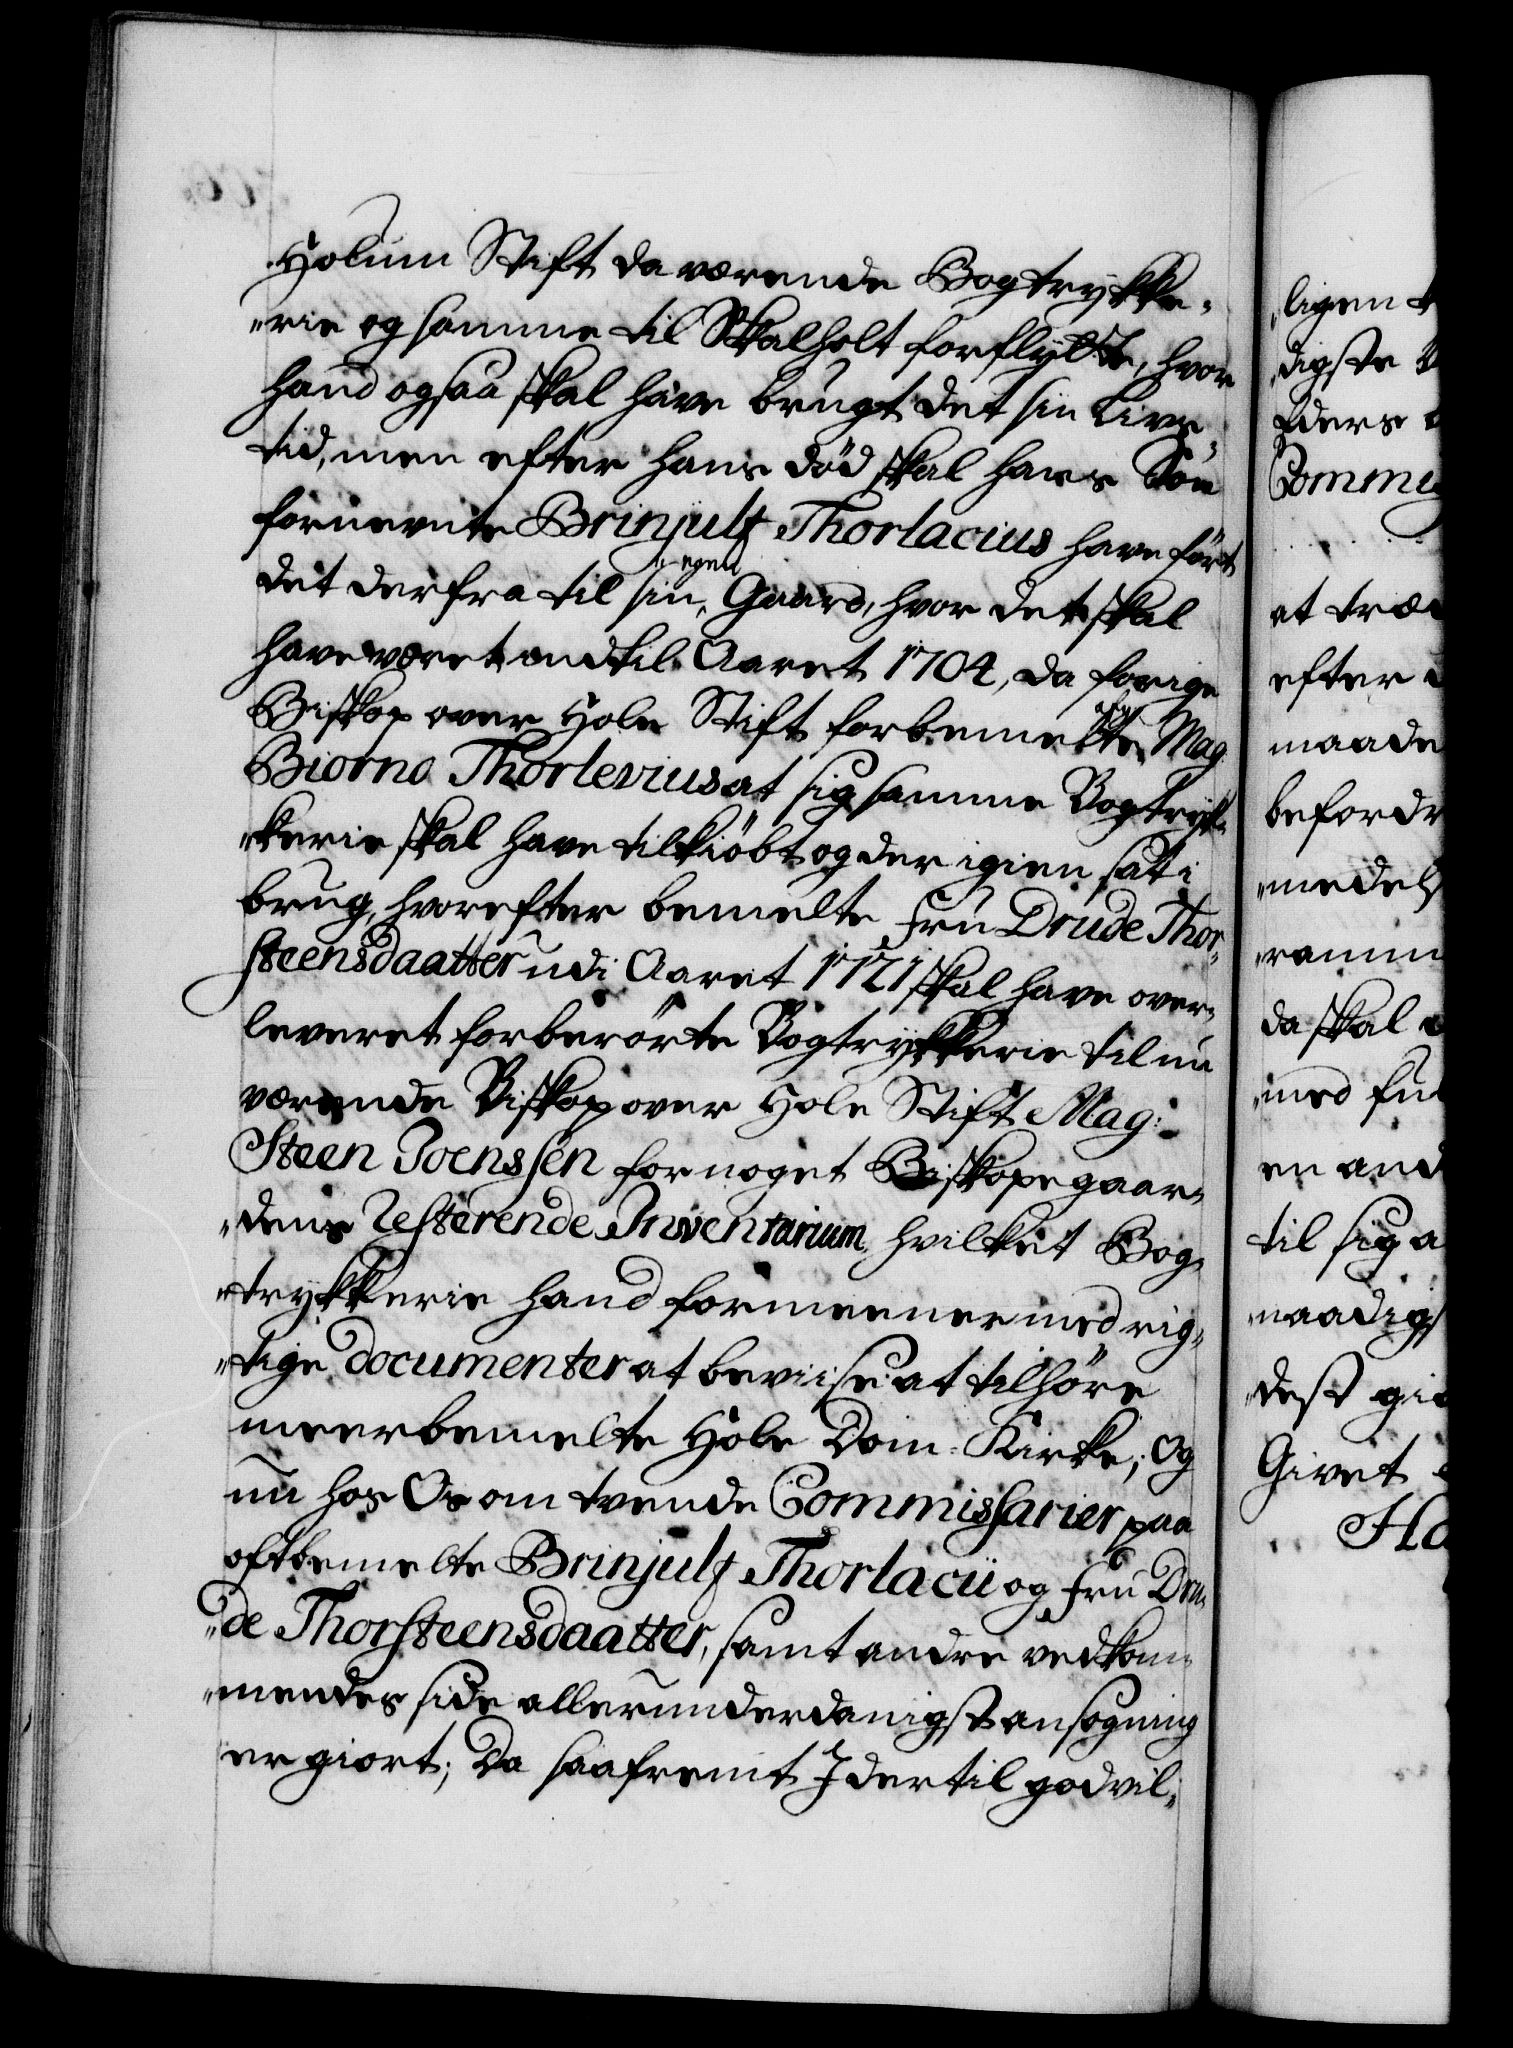 Holum Stift da værende Bogtrykke-
"rie og samme til Skalholt forflytte, hvor
hand ogsaa skal have brugt det sin Livs-
tid, men efter hans død skal hans Søn
fornevnte Brinjulf Thorlacius have ført
det derfra til sin egen Gaard, hvor det skal
have været indtil Aaret 1704, da forige
Biskop over Hole Stift forbemelte Mag.
Biorno Thorlevius at sig samme Bogtryk-
"kerie skal have tilkiøbt og der igien sat i
brug, hvorefter bemelte Fru Drude Thor-
steensdaatter udi Aaret 1721 skal have over-
leveret forberørte Bogtrykkerie til nu
værende Biskop over Hole Stift Mag:
Steen Joenssen for noget Biskopsgaar-
"dens resterende Inventarium, hvilket Bog-
"trykkerie hand formeener med rig-
"tige documenter at beviise at tilhøre
meerbemelte Hole Dom-Kirke; Og
nu hos Os om tvende Commissarier paa
oftbemelte Brinjulf Thorlacii og Fru Dru-
"de Thorsteensdaatter, samt andre vedkom-
"mendes side allerunderdanigst ansøgning
er giort; Da saafremt I dertil godvil-
ligen
digste
Eders
at træ
efter
maade
befordr
"medels
da skal
med ful
en and
til sig a
naadigs
dest gi
Givet